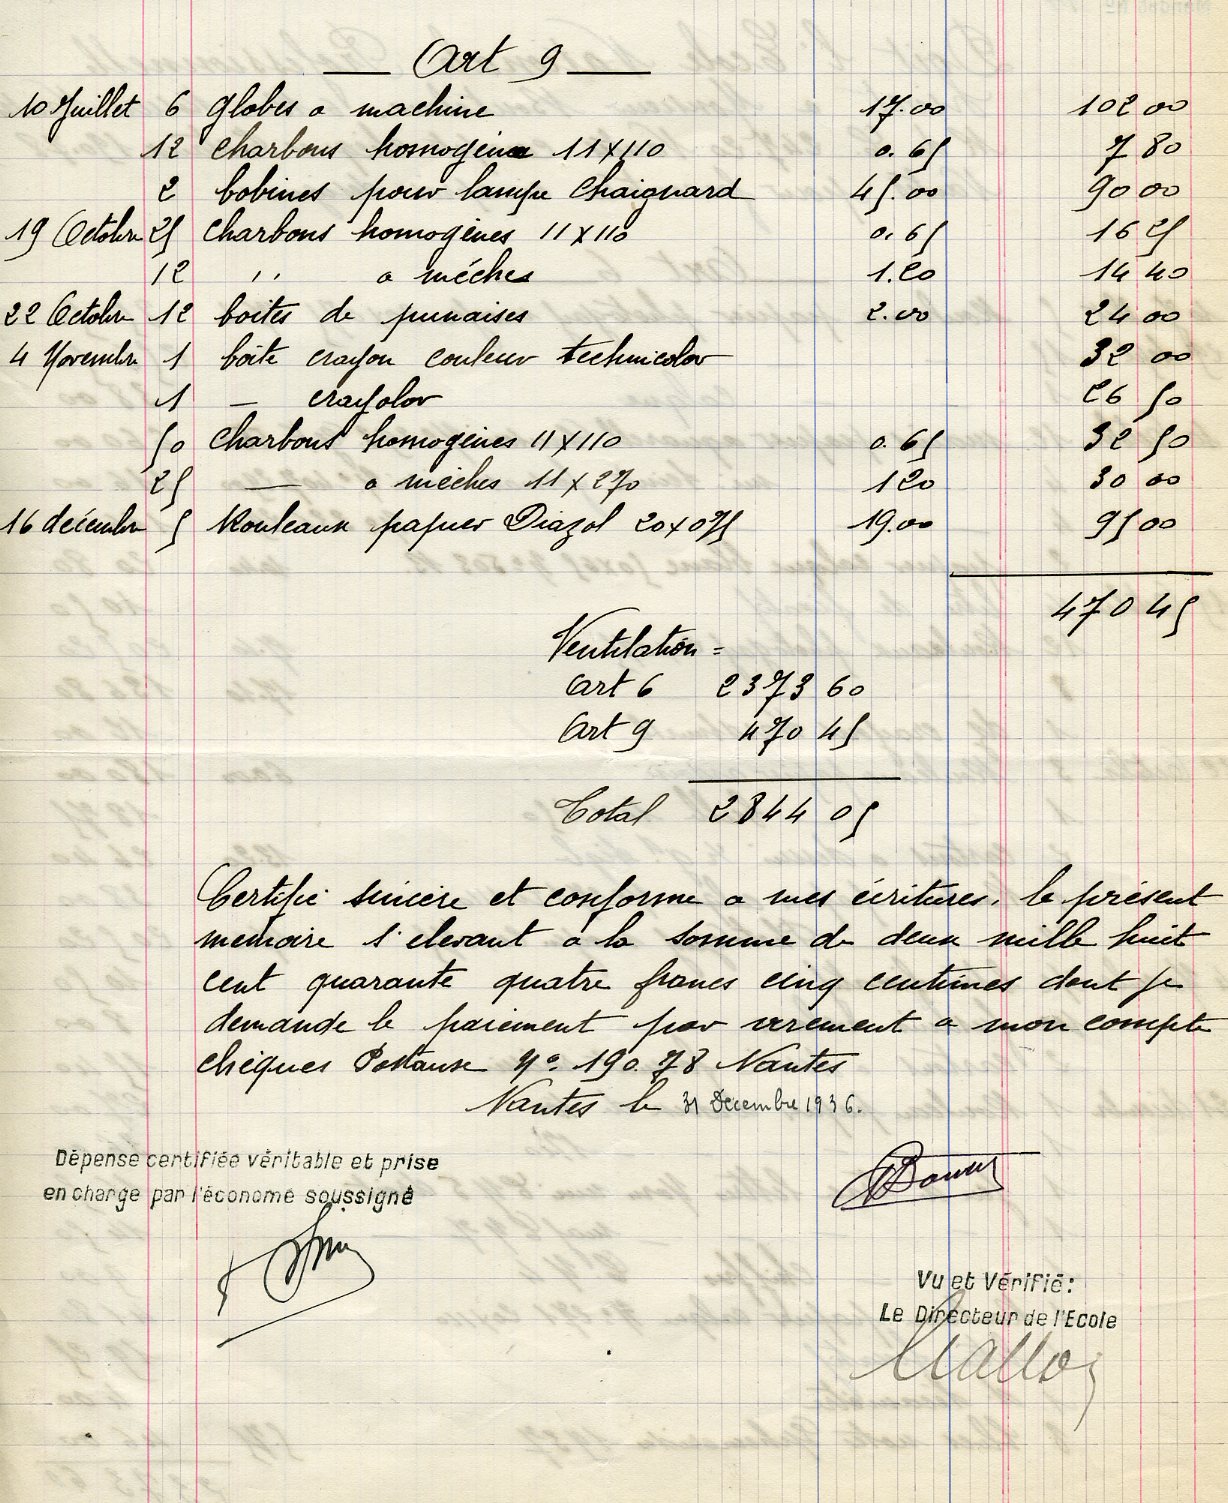 Art 9
10 Juillet 6 globes a machine 17.00 102 00
12 charbons homogène 11x110 0.65 7 80
2 bobines pour lampe Chaignard 45.00 90 00
19 Octobre 25 charbons homogènes 11x110 0.65 16 25
12 '' a mèches 1.20 14 40
22 Octobre 12 boites de punaises 2.00 24 00
4 Novembre 1 boite crayon couleur technicolor 32 00
1 — crayolor 26 50
50 charbons homogènes 11x110 0.65 32 50
25 — a mèches 11x270 1 20 30 00
16 décembre 5 Rouleaux papier Diazol 20x075 19.00 95 00
470 45
Ventilation =
Art 6 2373 60
Art 9 470 45
Total 2844 05
Certifié sincère et conforme a mes écritures. le présent
mémoire s'elevant a la somme de deux mille huit
cent quarante quatre francs cinq centimes dont je
demande le paiement par virement a mon compte
chèques Postaux No. 190.78 Nantes
Nantes le 31 Décembre 1936.
Dépense certifiée véritable et prise
en charge par l'économe soussigné
Vu et Vérifié:
Le Directeur de l'Ecole